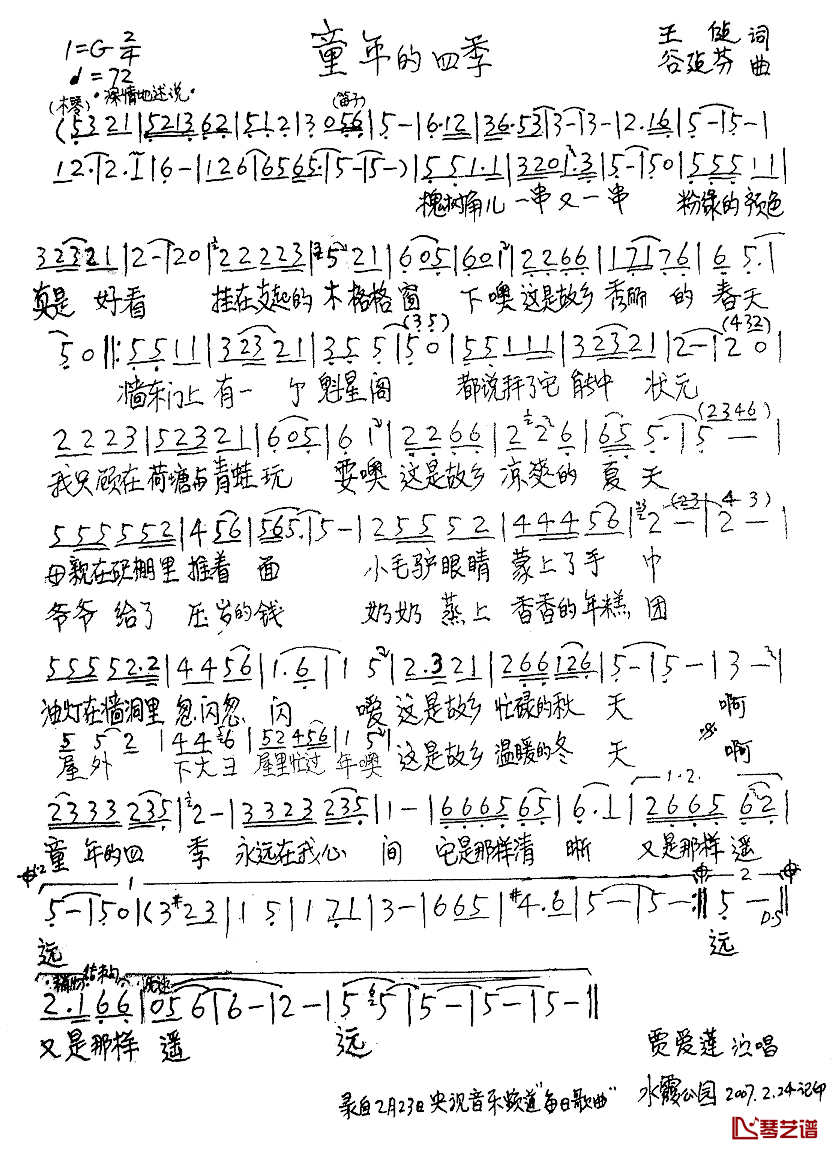 童年的四季
1=G 2/4
♩=72
王 词
谷建芬 曲
(木琴) "深情地述说" (笛子)
(5321|521362|512|3056|5-|6·12|36·53|3-|3-|2·16|5-|5-|
12·|2·1|6-|126|6565·|5-|5-)|551·1|3201·3|5-|50|55511|
槐树角儿一串又一串 粉绿的颜色
32321|2-|20|22223|521|605|601|2266|17176|65·|
真是好看 挂在支起的木格格窗 下噢这是故乡秀丽的春天
50||:5511|32321|355|50(35)|55111|32321|2-|20(432)|
墙东门上有一个魁星阁 都说拜了它能中状元
2223|52321|605|612|2266|226|655·|5-(2346)|
我只顾在荷塘与青蛙玩 耍噢这是故乡凉爽的夏天
555552|456|565·|5-|25552|44456|2-(23|2-43)|
母亲在碾棚里推着面 小毛驴眼睛蒙上了手巾
爷爷给了压岁的钱 奶奶蒸上香香的年糕团
55552·2|4456|1·6|15|2·321|266126|5-|5-|3-|
油灯在墙洞里忽闪忽闪 嗳这是故乡忙碌的秋天 啊
552|446|52456|15
屋外下大 屋里忙过年噢这是故乡温暖的冬天 啊
1·2·
2333235|2-|3323235|1-|666565|6·1|2665662|
童年的四季永远在我心间 它是那样清晰 又是那样遥
1 2
5-|50|(3#23|15|121|3-|665|#4·6|5-|5-:||5-||
D.S
远 远
结束句
2·166|056|6-|2-|565|5-|5-|5-||
又是那样遥 远
贾爱莲 演唱
录自2月23日央视音乐频道"每日歌曲" 水霞公园2007.2.24记印
琴艺谱